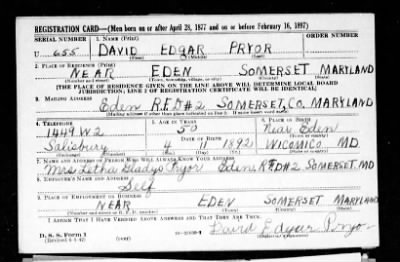 REGISTRATION CARD—(Men born on or after April 28, 1877 and on or before February 16, 1897)
SERIAL NUMBER 1. NAME (Print) ORDER NUMBER
U 655 DAVID EDGAR PRYOR
(First) (Middle) (Last)
2. PLACE OF RESIDENCE (Print)
NEAR EDEN SOMERSET MARYLAND
(Number and street) (Town, township, village, or city) (County) (State)
[THE PLACE OF RESIDENCE GIVEN ON THE LINE ABOVE WILL DETERMINE LOCAL BOARD
JURISDICTION; LINE 2 OF REGISTRATION CERTIFICATE WILL BE IDENTICAL]
3. MAILING ADDRESS
Eden R.F.D#2 SOMERSET, CO. MARYLAND
[Mailing address if other than place indicated on line 2. If same insert word same]
4. TELEPHONE 5. AGE IN YEARS 6. PLACE OF BIRTH
1449 W2 50 Near Eden
DATE OF BIRTH
Salisbury 4 11 1892 WICOMICO MD.
(Exchange) (Number) (Mo.) (Day) (Yr.) (Town or county) (State or country)
7. NAME AND ADDRESS OF PERSON WHO WILL ALWAYS KNOW YOUR ADDRESS
Mrs Letha Gladys Pryor Eden, RFD#2 SOMERSET, MD
8. EMPLOYER'S NAME AND ADDRESS
Self
9. PLACE OF EMPLOYMENT OR BUSINESS
NEAR EDEN SOMERSET MARYLAND
(Number and street or R. F. D. number) (Town) (County) (State)
I AFFIRM THAT I HAVE VERIFIED ABOVE ANSWERS AND THAT THEY ARE TRUE.
D. S. S. Form 1
(Revised 4-1-42) (over)
David Edgar Pryor